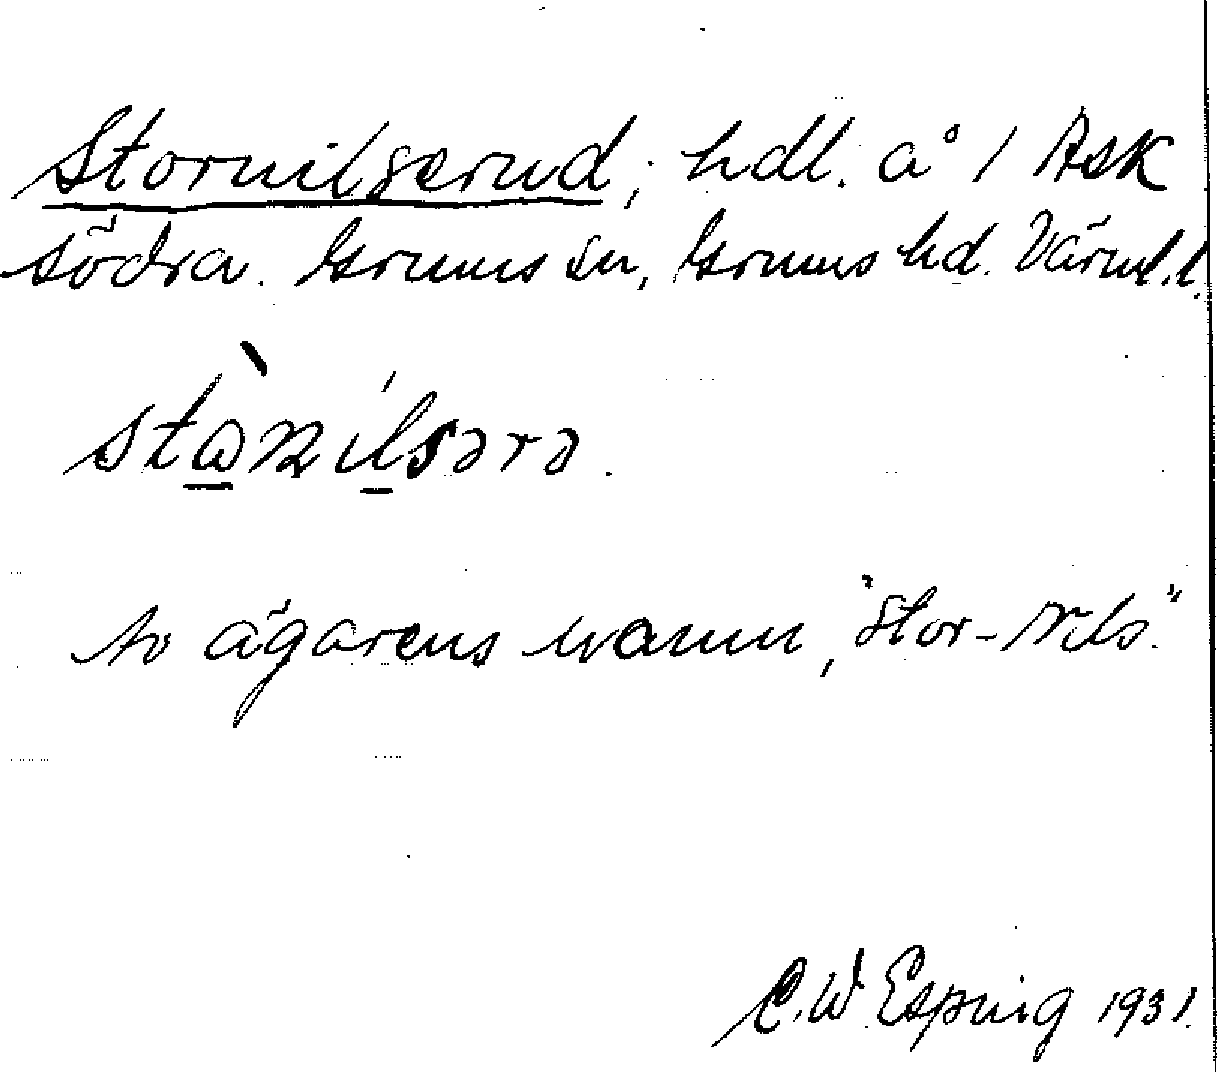 Stornilserud, hdl. å 1 Ask
södra. Grums sn, Grums hd. Värml.l.
stọ̀nilsərə.
Av ägarens namn, "Stor-Nils."
C.W. Esping 1931.